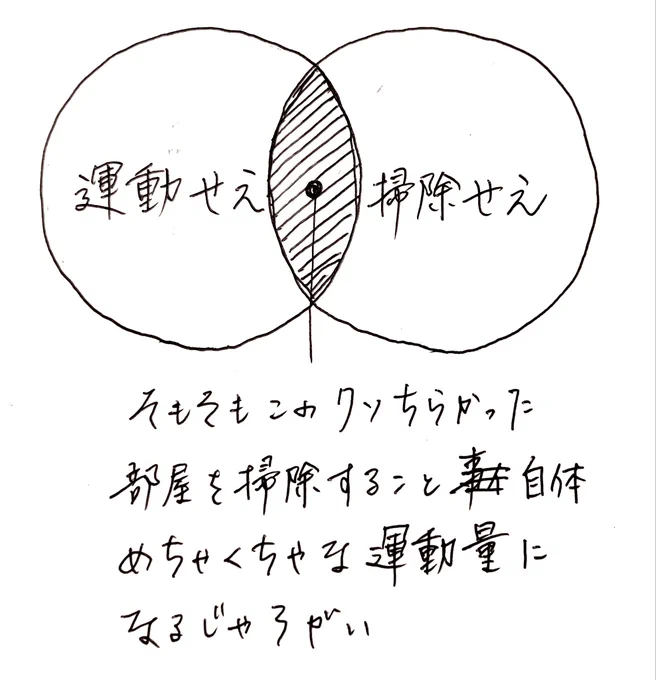 運動せえ
掃除せえ
そもそもこのクソちらかった
部屋を掃除すること自体
めちゃくちゃな運動量に
なるじゃろがい